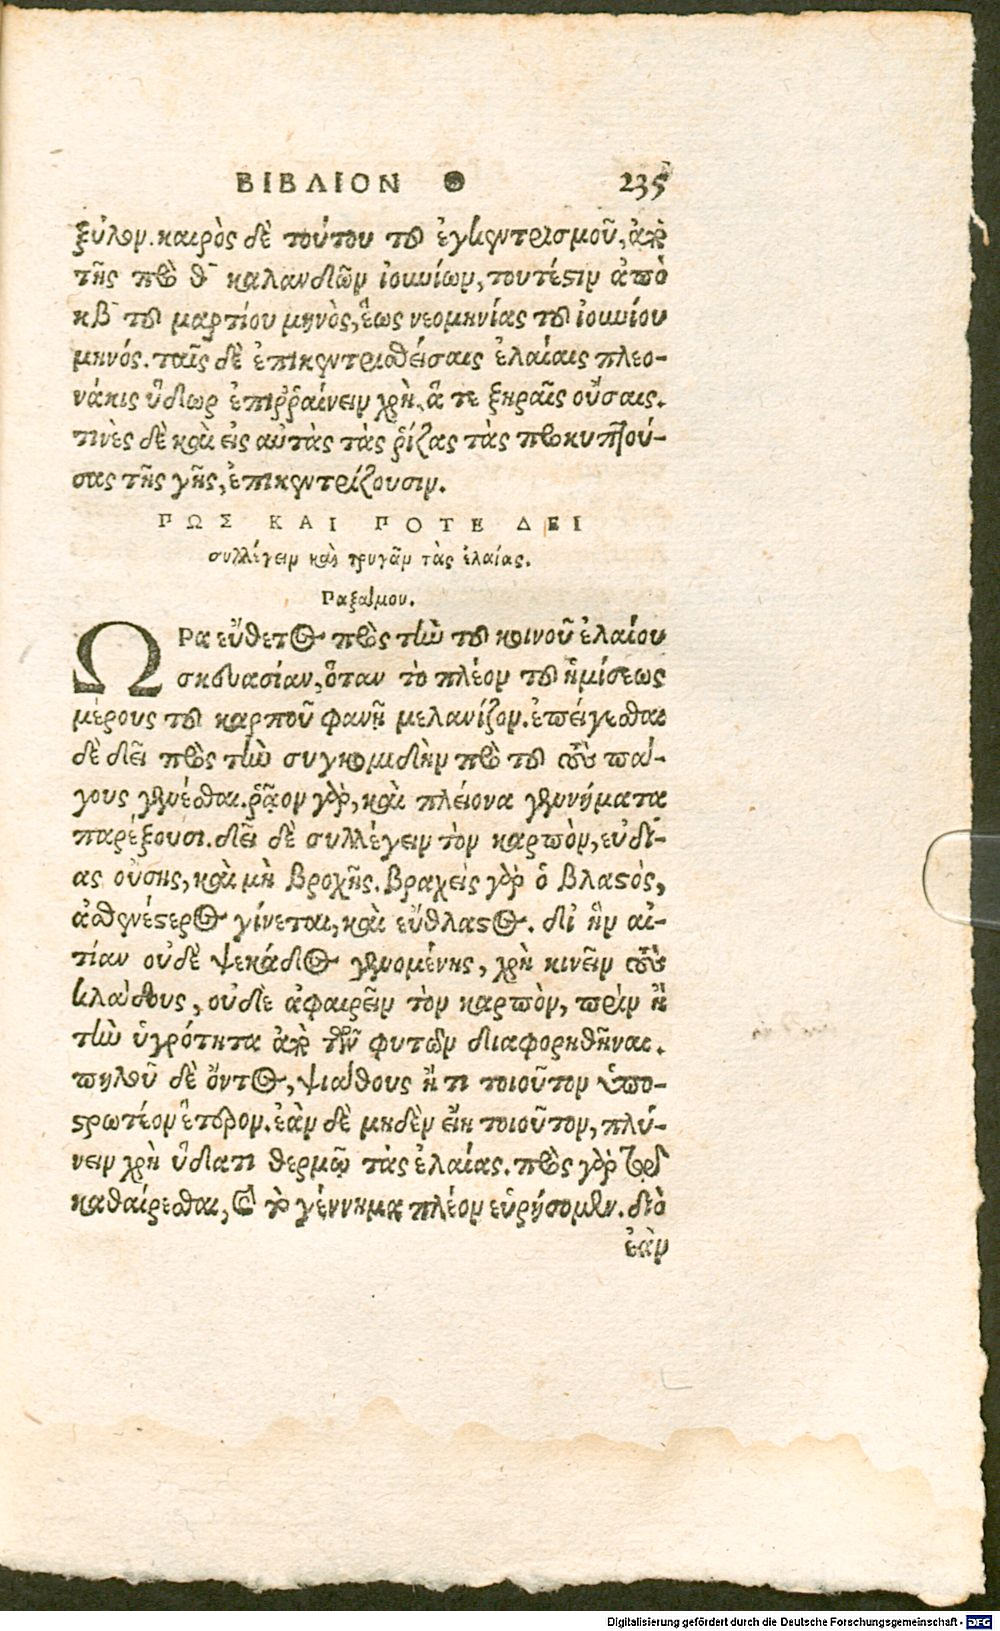 ΒΙΒΛΙΟΝ Θ 235
ξύλον. καιρὸς δὲ τούτου τοῦ ἐγκεντρισμοῦ, ἀπὸ
τῆς πρὸ θ̄ καλανδῶν ἰουνίων, τουτέστιν ἀπὸ
κβ̄ τοῦ μαρτίου μηνὸς, ἕως νεομηνίας τοῦ ἰουνίου
μηνός. ταῖς δὲ ἐπικεντρισθείσαις ἐλαίαις πλεο-
νάκις ὕδωρ ἐπιῤῥαίνειν χρὴ, ἅ τε ξηραῖς οὔσαις.
τινὲς δὲ καὶ εἰς αὐτὰς τὰς ῥίζας τὰς προκυπτού-
σας τῆς γῆς, ἐπικεντρίζουσιν.
ΠΩΣ ΚΑΙ ΠΟΤΕ ΔΕΙ
συλλέγειν καὶ τρυγᾶν τὰς ἐλαίας.
Παξάμου.
ΩΡα εὔθετος πρὸς τὴν τοῦ κοινοῦ ἐλαίου
σκευασίαν, ὅταν τὸ πλέον τοῦ ἡμίσεως
μέρους τοῦ καρποῦ φανῇ μελανίζον. ἐπείγεσθαι
δὲ δεῖ πρὸς τὴν συγκομιδὴν πρὸ τοῦ τοὺς πά-
γους γενέσθαι. ῥᾷον γὰρ, καὶ πλείονα γεννήματα
παρέξουσι. δεῖ δὲ συλλέγειν τὸν καρπὸν, εὐδί-
ας οὔσης, καὶ μὴ βροχῆς. βραχεὶς γὰρ ὁ βλαστὸς,
ἀσθενέστερος γίνεται, καὶ εὔθλαστος. δι' ἣν αἰ-
τίαν οὐδὲ ψεκάδος γενομένης, χρὴ κινεῖν τοὺς
κλάδους, οὐδὲ ἀφαιρεῖν τὸν καρπὸν, πρὶν ἢ
τὴν ὑγρότητα ἀπὸ τῶν φυτῶν διαφορηθῆναι.
πηλοῦ δὲ ὄντος, ψιάθους ἤ τι τοιοῦτον ὑπο-
στρωτέον ἕτερον. ἐὰν δὲ μηδὲν εἴη τοιοῦτον, πλύ-
νειν χρὴ ὕδατι θερμῷ τὰς ἐλαίας. πρὸς γὰρ τῷ
καθαίρεσθαι, καὶ τὸ γέννημα πλέον εὑρήσομεν. διὸ
ἐὰν
Digitalisierung gefördert durch die Deutsche Forschungsgemeinschaft - DFG